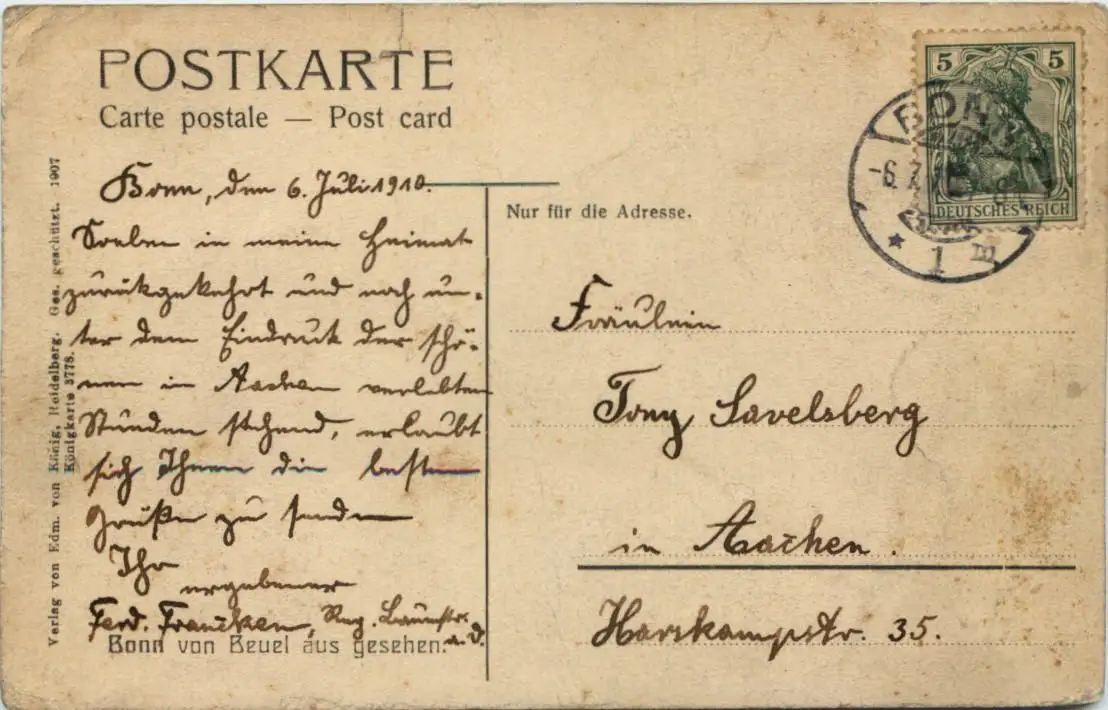 POSTKARTE
Carte postale — Post card
Bonn, den 6. Juli 1910.
Soeben in meine Heimat
zurückgekehrt und noch un-
ter dem Eindruck der schö-
nen in Aachen verlebten
Stunden stehend, erlaubt
sich Ihnen die besten
Grüße zu senden
Ihr
ergebener
Ferd. Francken, Reg.
a. D.
Bonn von Beuel aus gesehen.
Verlag von Edm. von König, Heidelberg. Ges. geschützt. 1907
Königkarte 3778.
Nur für die Adresse.
5 5
DEUTSCHES REICH
BONN
-6.7.
1
Fräulein
Tony Savelsberg
in Aachen.
Harskampstr. 35.